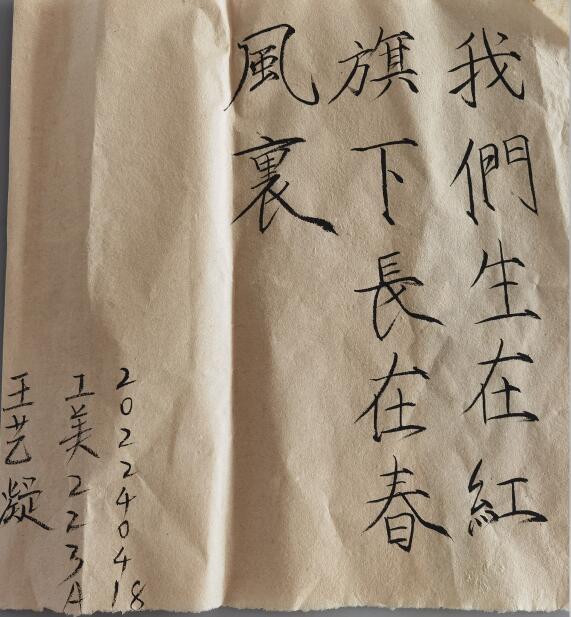 我們生在紅
旗下長在春
風裏
202240418
工美223A
王艺凝